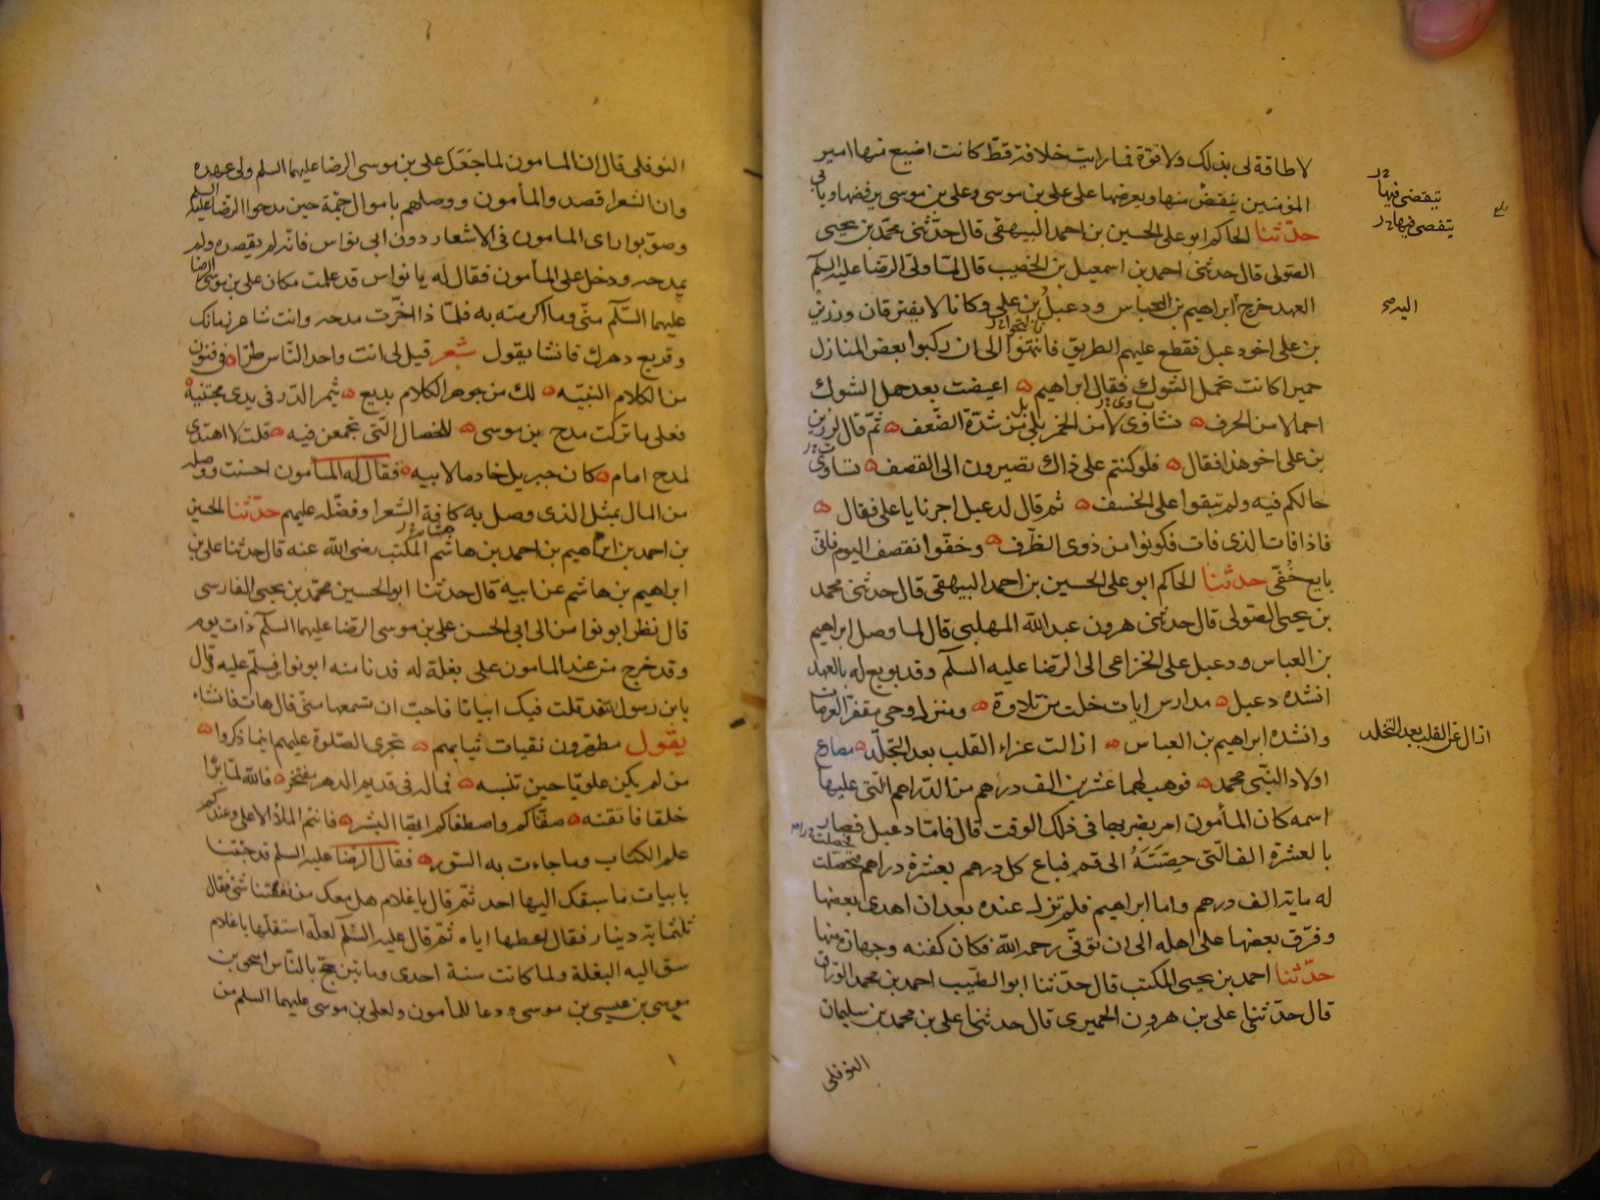 لا طاقة لى بذلك ولا قوة فما رايت خلافة قط كانت اضيع منها امير
المؤمنين ينقض منها ويعرضها على على بن موسى وعلى بن موسى يرفضها ويابى
حدثنا الحاكم ابو على الحسين بن احمد البيهقى قال حدثنى محمد بن يحيى
الصولى قال حدثنى احمد بن اسمعيل بن الخصيب قال لما ولى الرضا عليه السلم
العهد خرج ابراهيم بن العباس ودعبل بن على وكانا لا يفترقان ورزين
بن على اخو دعبل فقطع عليهم الطريق فالتجؤا الى ان ركبوا بعض المنازل
حميرا كانت تحمل الشوك فقال ابراهيم اعيضت بعد حمل الشوك
احمالا من الحرف نشاوى لا من الخمر بل من شدة الضعف ثم قال لرزين
بن على اخو هذا فقال فلو كنتم على ذاك تصيرون الى القصف تساوى
حالكم فيه ولم تبقوا على الخسف ثم قال لدعبل اجرنا يا على فقال
فاذا فات الذى فات فكونوا من ذوى الظرف وخفوا نقصف اليوم فانى
بايع خفى حدثنا الحاكم ابو على الحسين بن احمد البيهقى قال حدثنى محمد
بن يحيى الصولى قال حدثنى هرون عبد الله المهلبى قال لما وصل ابراهيم
بن العباس ودعبل على الخزاعى الى الرضا عليه السلم وقد بويع له بالعهد
انشده دعبل مدارس ايات خلت من تلاوة ومنزل وحى مقفر العرصات
وانشده ابراهيم بن العباس ازالت عزاء القلب بعد التجلد مصارع
اولاد النبى محمد فوهب لهما عشرين الف درهم من الدراهم التى عليها
اسمه كان المأمون امر بضربها فى ذلك الوقت قال فاما دعبل فصار
بالعشرة الف التى حصته الى قم فباع كل درهم بعشرة دراهم فتحصلت
له ماية الف درهم واما ابراهيم فلم تزل عنده بعد ان اهدى بعضها
وفرق بعضها على اهله الى ان توفى رحمه الله فكان كفنه وجهازه منها
حدثنا احمد بن يحيى المكتب قال حدثنا ابو الطيب احمد بن محمد الوراق
قال حدثنى على بن هرون الحميرى قال حدثنى على بن محمد بن سليمان
النوفلى
يتقصى فيها
ازال عن القلب بعد التجلد
النوفلى قال ان المامون لما جعل على بن موسى الرضا عليهما السلم ولى عهده
وان الشعرا قصدوا المأمون ووصلهم باموال جمة حين مدحوا الرضا عليه السلم
وصوبوا راى المامون فى الاشعار دون ابى نواس فانه لم يقصده ولم
يمدحه ودخل على المأمون فقال له يا نواس قد علمت مكان على بن موسى الرضا
عليهما السلم منى وما اكرمته به فلماذا اخرت مدحه وانت شاعر زمانك
وقريع دهرك فانشا يقول شعر قيل لى انت واحد الناس طرا فى فنون
من الكلام النبيه لك من جوهر الكلام بديع يثمر الدر فى يدى مجتنيه
فعلى ما تركت مدح بن موسى للخصال التى تجمعن فيه قلت لا اهتدى
لمدح امام كان جبريل خادما لابيه فقال له المأمون احسنت ووصله
من المال بمثل الذى وصل به كافة الشعرا وفضله عليهم حدثنا الحسين
بن احمد بن ابراهيم بن احمد بن هاشم المكتب رضى الله عنه قال حدثنا على بن
ابراهيم بن هاشم عن ابيه قال حدثنا ابو الحسين محمد بن يحيى الفارسى
قال نظر ابو نواس الى ابى الحسن على بن موسى الرضا عليهما السلم ذات يوم
وقد خرج من عند المامون على بغلة له فدنا منه ابو نواس فسلم عليه وقال
يا بن رسول الله قد قلت فيك ابياتا فاحب ان تسمعها منى قال هات فانشاء
يقول مطهرون نقيات ثيابهم تجرى الصلوة عليهم اينما ذكروا
من لم يكن علويا حين تنسبه فماله فى قديم الدهر مفتخر فالله لما برا
خلقا فاتقنه صفاكم واصطفاكم ايها البشر فانتم الملأ الاعلى وعندكم
علم الكتاب وما جاءت به السور فقال الرضا عليه السلم قد جئتنا
بابيات ما سبقك اليها احد ثم قال يا غلام هل معك من نفقتنا شئ فقال
ثلثماية دينار فقال اعطها اياه ثم قال عليه السلم لعله استقلها يا غلام
سق اليه البغلة ولما كانت سنة احدى وماتين حج بالناس اسحق بن
موسى بن عيسى بن موسى ودعا للمأمون ولعلى بن موسى عليهما السلم من